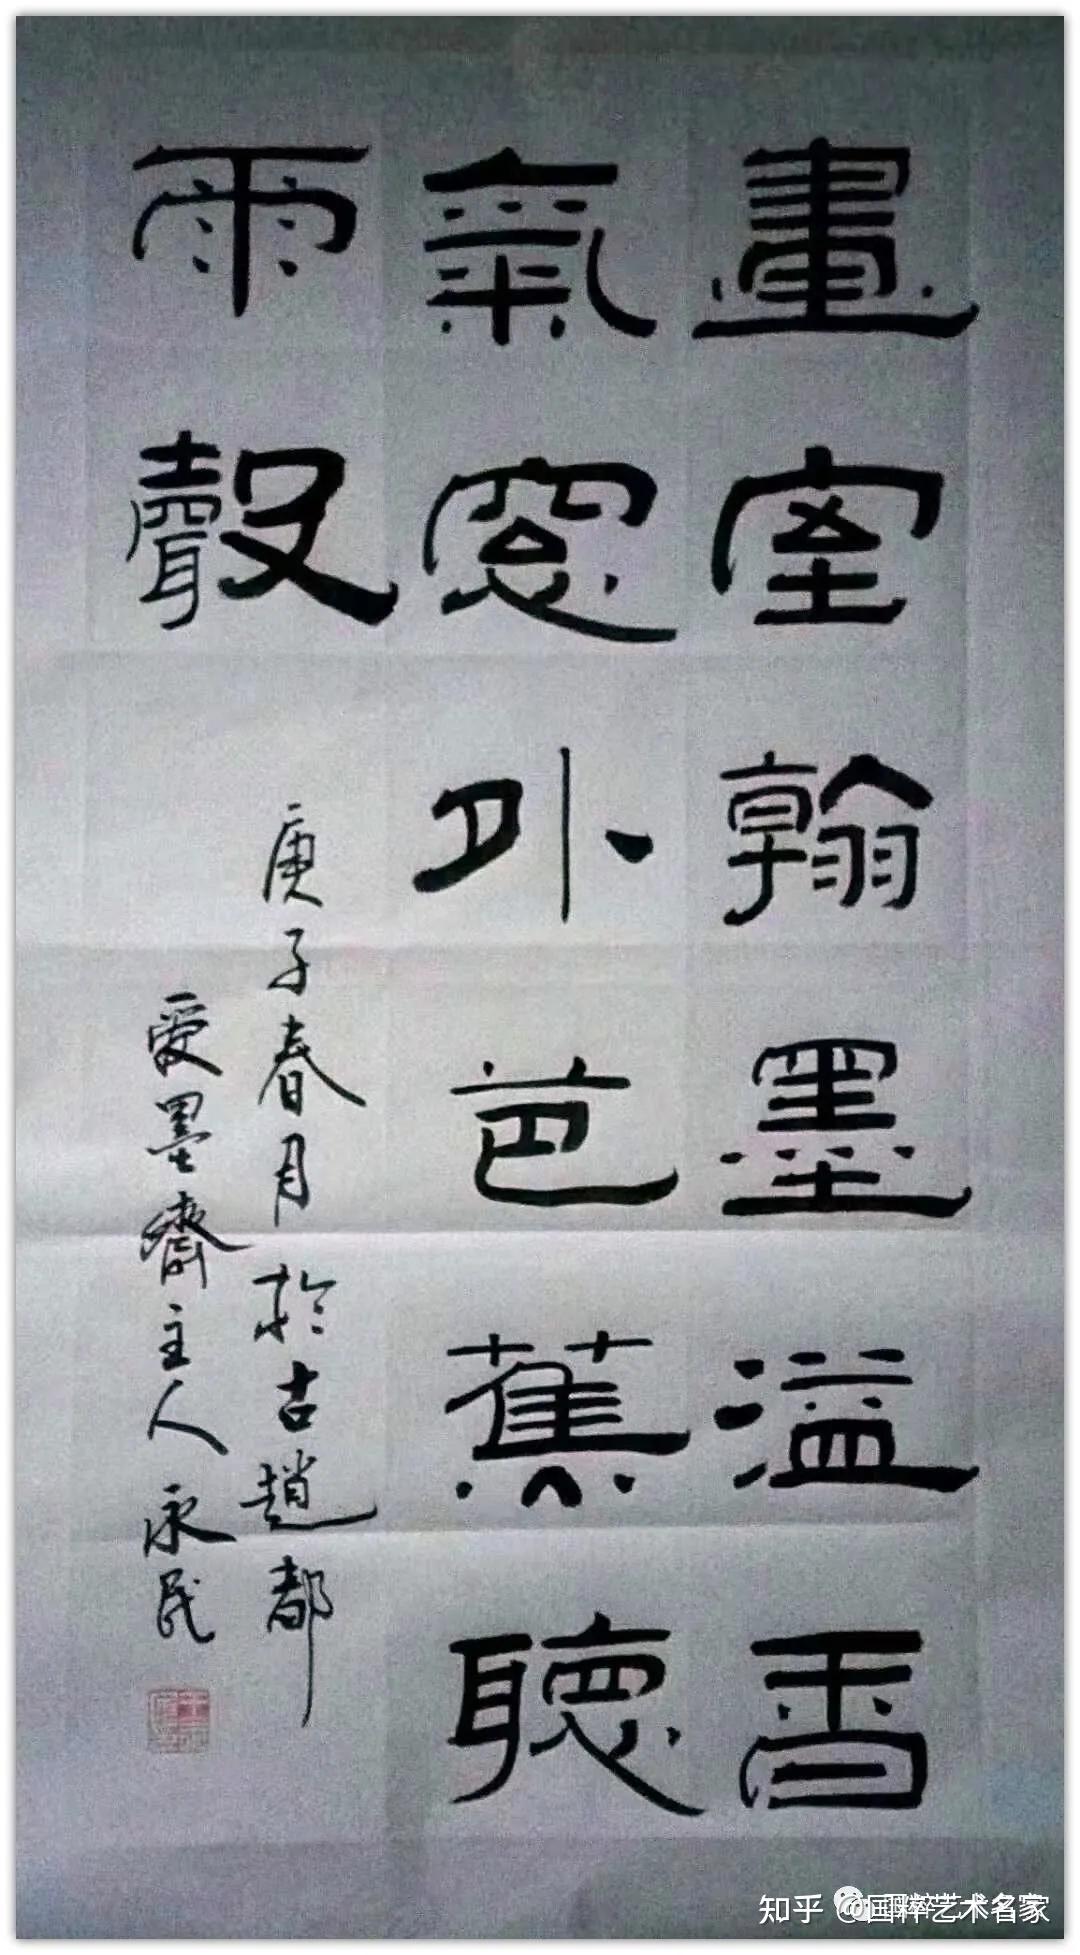 畫室翰墨溢香
氣窓外芭蕉聽
雨聲
庚子春月於古趙都
愛墨齋主人永民
知乎 @国粹艺术名家